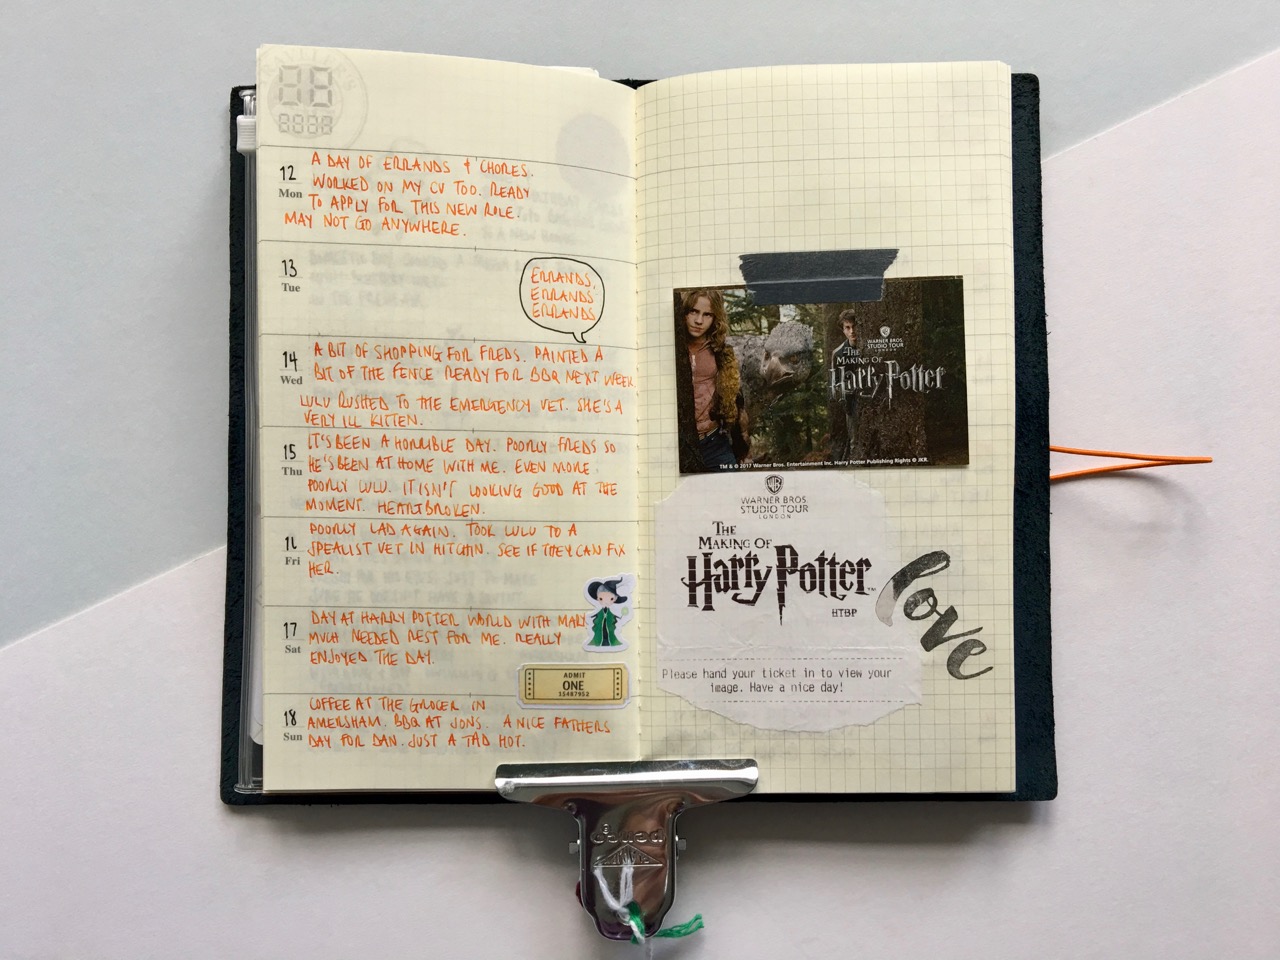 12
Mon
A DAY OF ERRANDS & CHORES.
WORKED ON MY CV TOO. READY
TO APPLY FOR THIS NEW ROLE.
MAY NOT GO ANYWHERE.
13
Tue
ERRANDS,
ERRANDS
ERRANDS
14
Wed
A BIT OF SHOPPING FOR FREDS. PAINTED A
BIT OF THE FENCE READY FOR BBQ NEXT WEEK.
LULU RUSHED TO THE EMERGENCY VET. SHE'S A
VERY ILL KITTEN.
15
Thu
IT'S BEEN A HORRIBLE DAY. POORLY FREDS SO
HE'S BEEN AT HOME WITH ME. EVEN MORE
POORLY LULU. IT ISN'T LOOKING GOOD AT THE
MOMENT. HEARTBROKEN.
16
Fri
POORLY LAD AGAIN. TOOK LULU TO A
SPEALIST VET IN HITCHIN. SEE IF THEY CAN FIX
HER.
17
Sat
DAY AT HARRY POTTER WORLD WITH MARY.
MUCH NEEDED REST FOR ME. REALLY
ENJOYED THE DAY.
ADMIT
ONE
15487952
18
Sun
COFFEE AT THE GROCER IN
AMERSHAM. BBQ AT JONS. A NICE FATHERS
DAY FOR DAN. JUST A TAD HOT.
WARNER BROS.
STUDIO TOUR
LONDON
THE
MAKING OF
Harry Potter
TM & © 2017 Warner Bros. Entertainment Inc. Harry Potter Publishing Rights © JKR.
WARNER BROS.
STUDIO TOUR
LONDON
THE
MAKING OF
Harry Potter™
HTBP
love
Please hand your ticket in to view your
image. Have a nice day!
penco